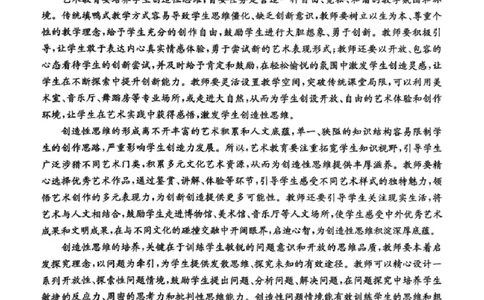 境。传统填鸭式教学方式容易导致学生思维僵化、缺乏创新意识,教师要树立以生为本、尊重个
性的教学理念,给予学生充分的创作自由,鼓励学生进行大胆想象、勇于创新。教师要积极引
导,让学生敢于表达内心真实情感体验,勇于尝试新的艺术表现形式;教师还要以开放、包容的
心态看待学生的创新尝试,并及时给予肯定和鼓励,在轻松愉悦的氛围中激发学生创造灵感,让
学生在不断探索中提升创新能力。教师要灵活设置教学空间,突破传统课堂局限,可以利用美
术室、音乐厅、舞蹈房等专业场所,或走进大自然,从而为学生创设开放、自由的艺术体验和创作
环境,让学生在艺术实践中获得感悟,激发学生创造性思维。
创造性思维的形成离不开丰富的艺术积累和人文底蕴,单一、狭隘的知识结构容易限制学
生的创作思路,严重影响学生创造力发展。所以,艺术教育要注重拓宽学生知识视野,引导学生
广泛涉猎不同艺术门类,积累多元文化艺术资源,从而为创造性思维提供丰厚滋养。教师要精
心选择优秀艺术作品,通过鉴赏、讲解、体验等环节,引导学生感受不同艺术样式的独特魅力,领
悟艺术创作的多元表现力,为创新创造提供更多可能性。教师还要引导学生关注现实生活,将
艺术与人文相结合,鼓励学生走进博物馆、美术馆、音乐厅等人文场所,使学生感受中外优秀艺术
成果和文明成果,在与不同文化的碰撞交融中开阔眼界,启迪心智,为创造性思维积淀深厚底蕴。
创造性思维的培养,关键在于训练学生敏锐的问题意识和开放的思维品质,教师要本着启
发探究理念,以问题为牵引,为学生提供发散思维、探索未知的有效途径。教师可以精心设计一
系列开放性、探索性问题情境,鼓励学生提出问题、分析问题、解决问题,在问题探究中培养学生
敏捷的反应力、周密的思考力和批判性思维能力。创造性问题情境能有效训练学生的思维和积